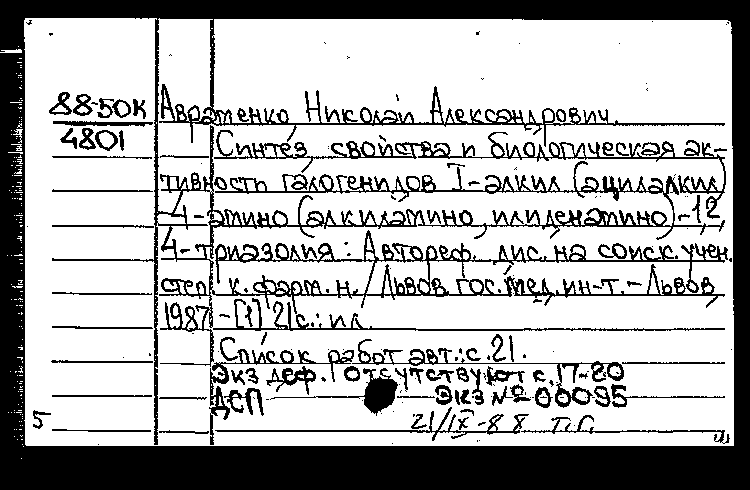 88-50К Авраменко, Николай Александрович.
4801 Синтез, свойства и биологическая ак-
тивность галогенидов I-алкил (ацилалкил)
-4-амино (алкиламино, илиденамино)-1,2,
4-триазолия: Автореф. дис. на соиск. учен.
степ. к. фарм. н. / Львов. гос. мед. ин-т. - Львов,
1987 - [1] 21 с.: ил.
Список работ авт.: с. 21.
Экз деф. Отсутствуют с. 17-20
ДСП Экз № 00095
5 21/IX-88 Т.Г.